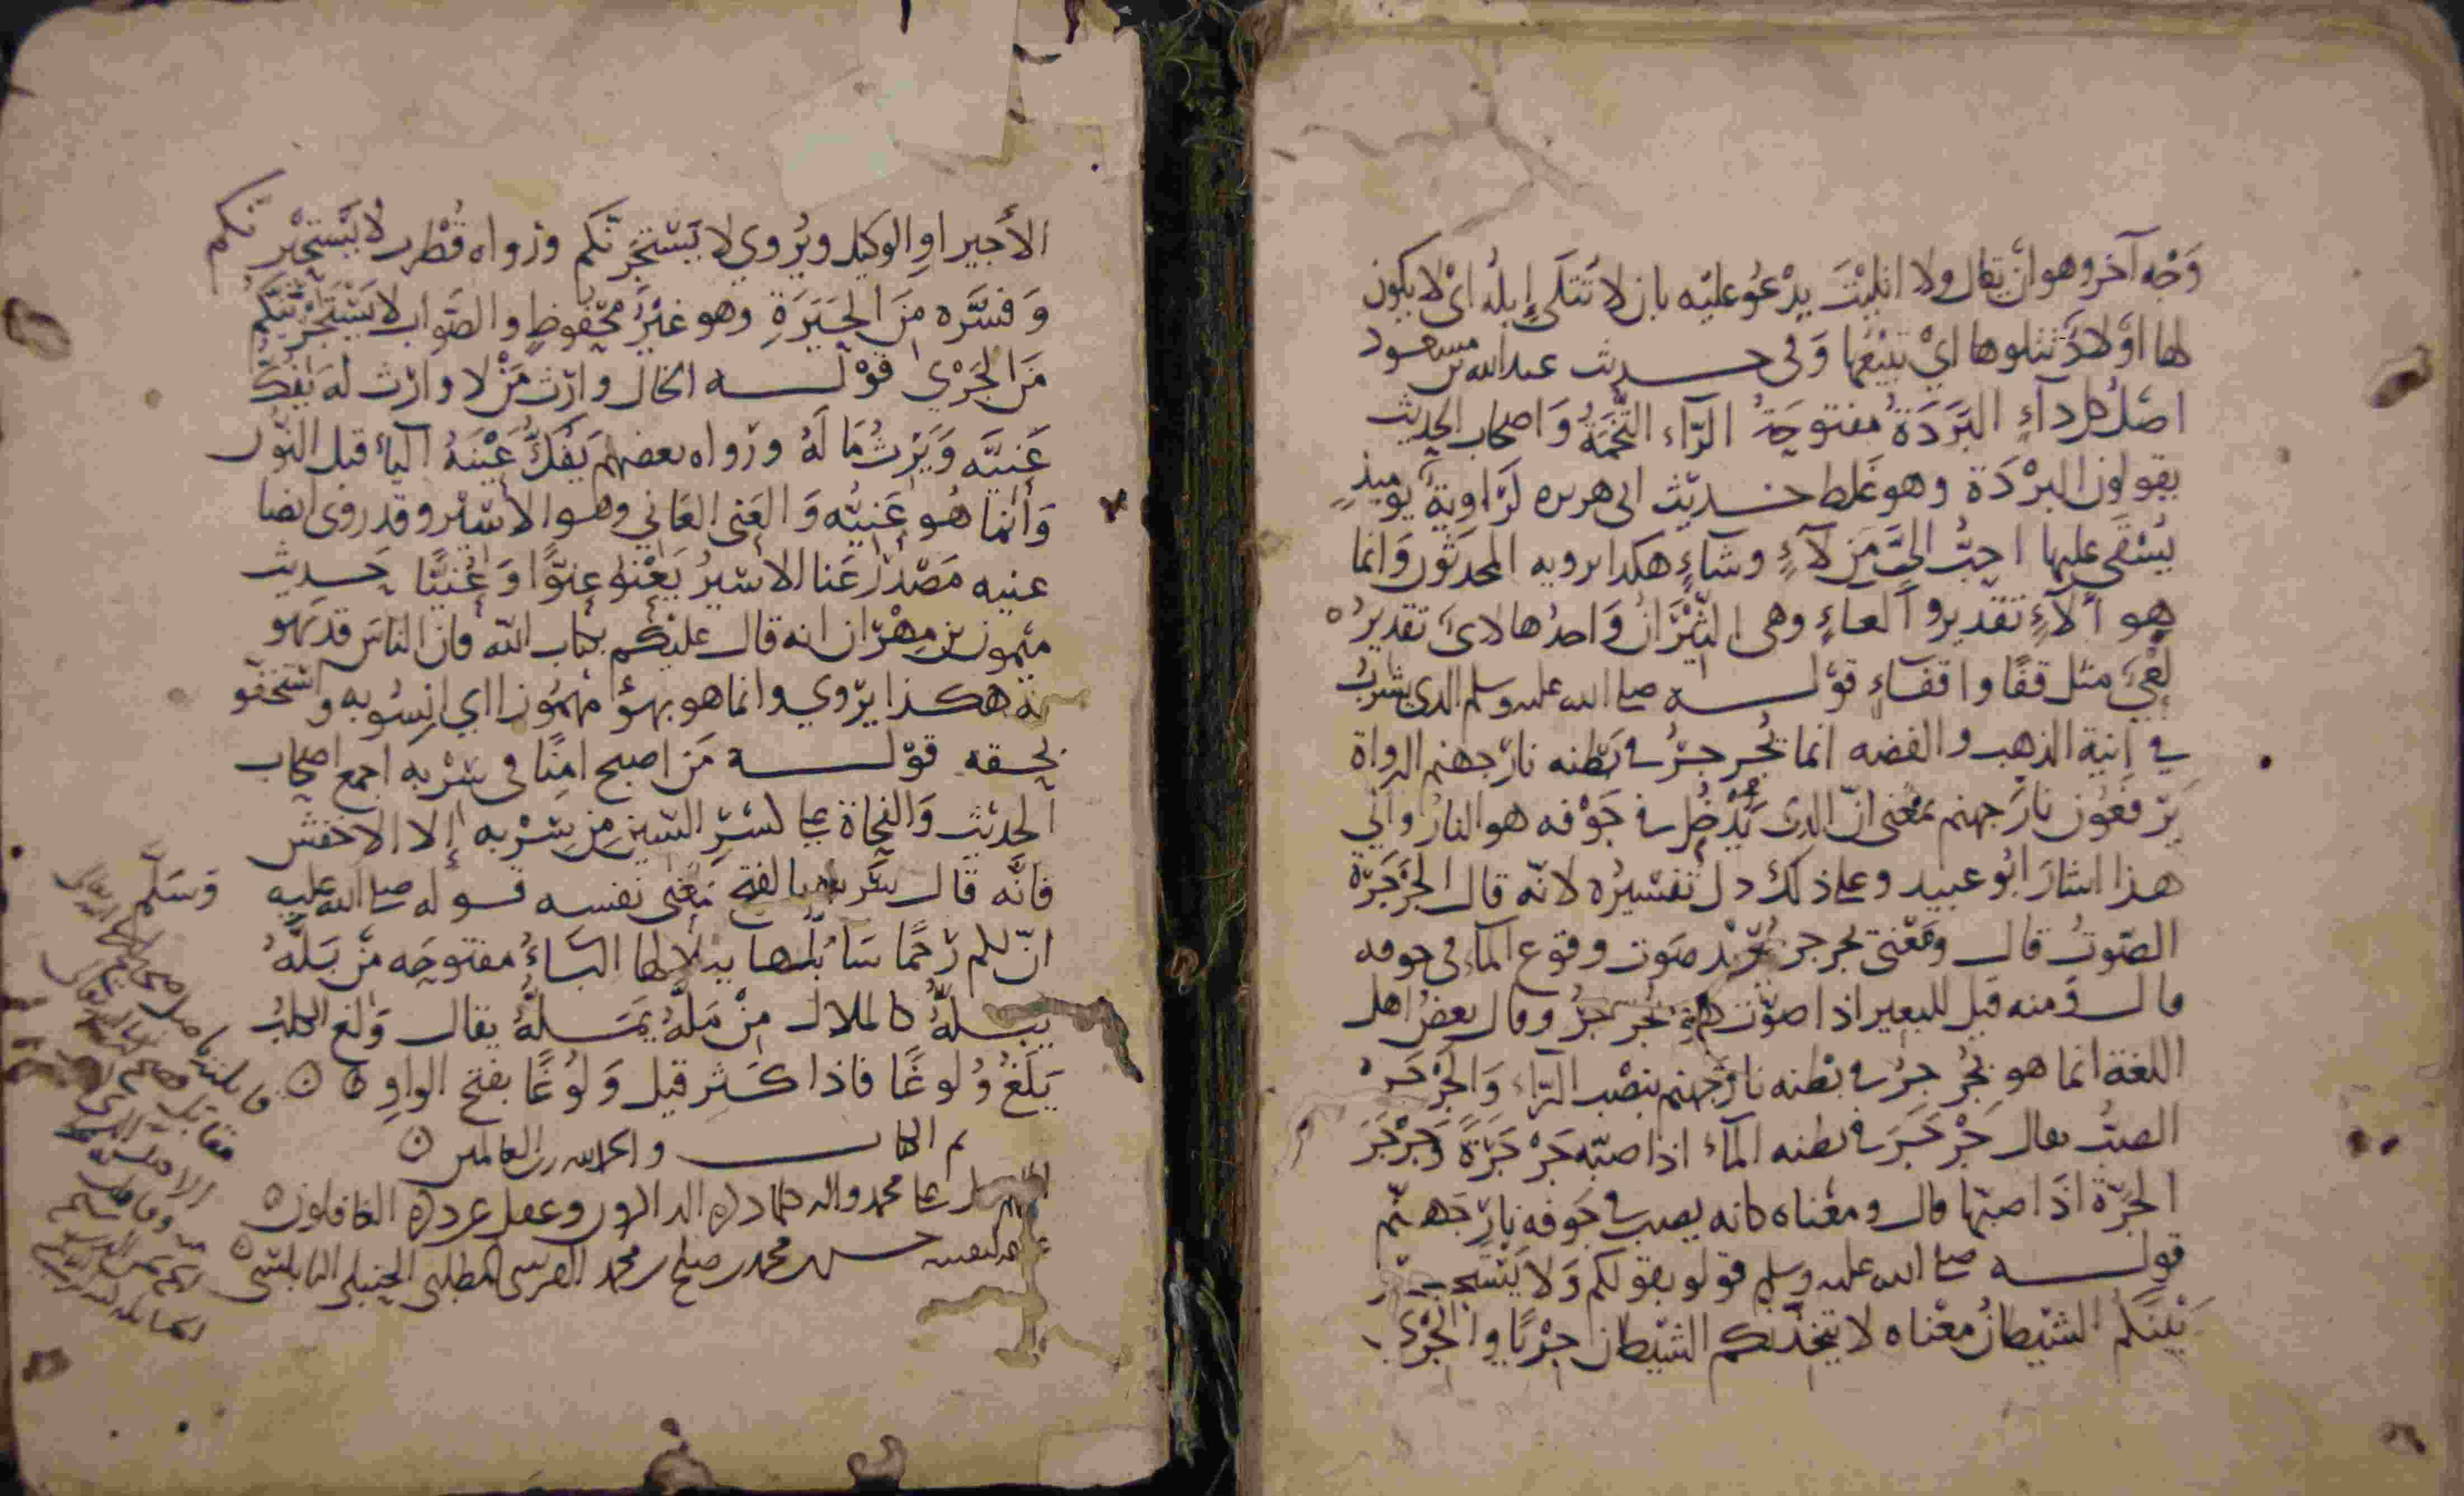 وَجْه آخر وهو ان يقال ولا اتليْتَ يدْعُو عليْه بان لا تَتلَى إبلُه ايْ لا يكون
لها اوْلادٌ تتلوها ايْ تتبَعُها وَفى حديث عبد الله بن مسعود
اصْلُ كل دآءٍ البَرَدَةُ مفتوحَةُ الرّآء التُّخَمَةُ وَاصحاب الحديث
يقولون البرْدَة وهو غلط حديث ابى هريره لرَاويَةٌ يوميذٍ
يُسْقَى عليها احبُّ اليَّ مِن لآءٍ وشآءٍ هكذا يرويه المحدثون وَانما
هو ألآءٍ تقدير ألعاءٍ وهى الثّيْرَانُ وَاحدُها لآىً تقديرُه
لَعًى مثل قفًا واقفآءٍ قوْله صلى الله عليه وسلم الذى يشرَبُ
في آنية الذهب والفضه انما يُجرجرُ فى بَطْنه نارُ جهنم الرواة
يَرْفعُون نارُ جهنم بمعْنى انّ الذى يَدْخُل فى جَوْفه هو النارُ والي
هذا اشارَ ابُو عبيد وعلى ذلك دل تفسْيرُه لانّه قال الجَرْجَرَة
الصّوتُ قال ومَعْنى يجرجر يُريْد صَوت وقوع المآء فى جوفه
قال وَمنه قيل للبعير اذا صوّت هو يُجرجرُ وقال بعضُ اهل
اللغة انما هو يُجرجرُ فى بطْنه نارَ جهنم بنصْب الرّاء وَالجَرْجَرَة
الصبُّ يقال جَرْجَرَ فى بطنه المآءَ اذا صبّه جَرْجَرَةً وَجَرْجَرَ
الجَرّةَ اذَا صبّها قال ومعْناه كانه يصب فى جَوفه نارَ جَهنّم
قوله صلى الله عليه وسلم قولو بقولكم وَلا يَسْتجر
يَنّكم الشيْطانُ معْناه لا يتخذنّكم الشيْطان جرْيًا والجَرْيُ
الأجير او الوكيل ويُروي لا يَسْتَجْرِئَنّكم ورواه قُطْرب لا يَسْتَحْيِرَنّكم
وَفسَّره مِنَ الحَيْرَةِ وهو غَيْرُ محْفُوظٍ والصّواب لا يَسْتَجْرِيَنّكم
مِنَ الجَرْي قوْله الخال وارث مَنْ لا وارث له يفكّ
عُنيَّه وَيَرثُ مَا لَهُ ورواه بعضهم يَفُكّ عَيْنَهُ اليآء قبل النّون
وَانما هُو عُنيُّه وَالعُنى العَاني وهو الاسَيْر وقد روى ايضا
عنيه مَصْدَر عَنا الاسيرُ يَعْنو عنوًّا وَعُنيًّا حَديث
ميْمون بن مِهْرَان انه قال عليْكم بكتاب الله فان الناسَ قد بهو
به هكذا يرْوي وانما هو بهؤ مهمُوزا اي انِسُو به واستخفّو
بحقه قوْله مَن اصبح امنًا فى سَرْبه اجمع اصحاب
الحديْث وَالنحاة على كسْر السّين مِن سِرْبه إلا الاخفش
فانَّه قال سَرْبه بالفتح يَعْنى نفسه قوله صلى الله عليه وَسَلم
انّ لكم رَحمًا سَابُلّها ببلالها البَاءُ مفتوحَه مِنْ بَلَّهُ
يبلهُّ كالملال مِنْ مَلَّهُ يَمَلّهُ يقال وَلغ الكلبُ
يَلَغُ وُلوغًا فاذا كثر قيل وَلوُغًا بفتح الواوِ
تم الكتاب والحمد لله رب العالمين
اللهم صل على محمد واله كلما ذكره الذاكرون وغفل عن ذكره الغافلون
محمد بن صلح بن محمد القرشى المطلبى الحنبلى النابلسى